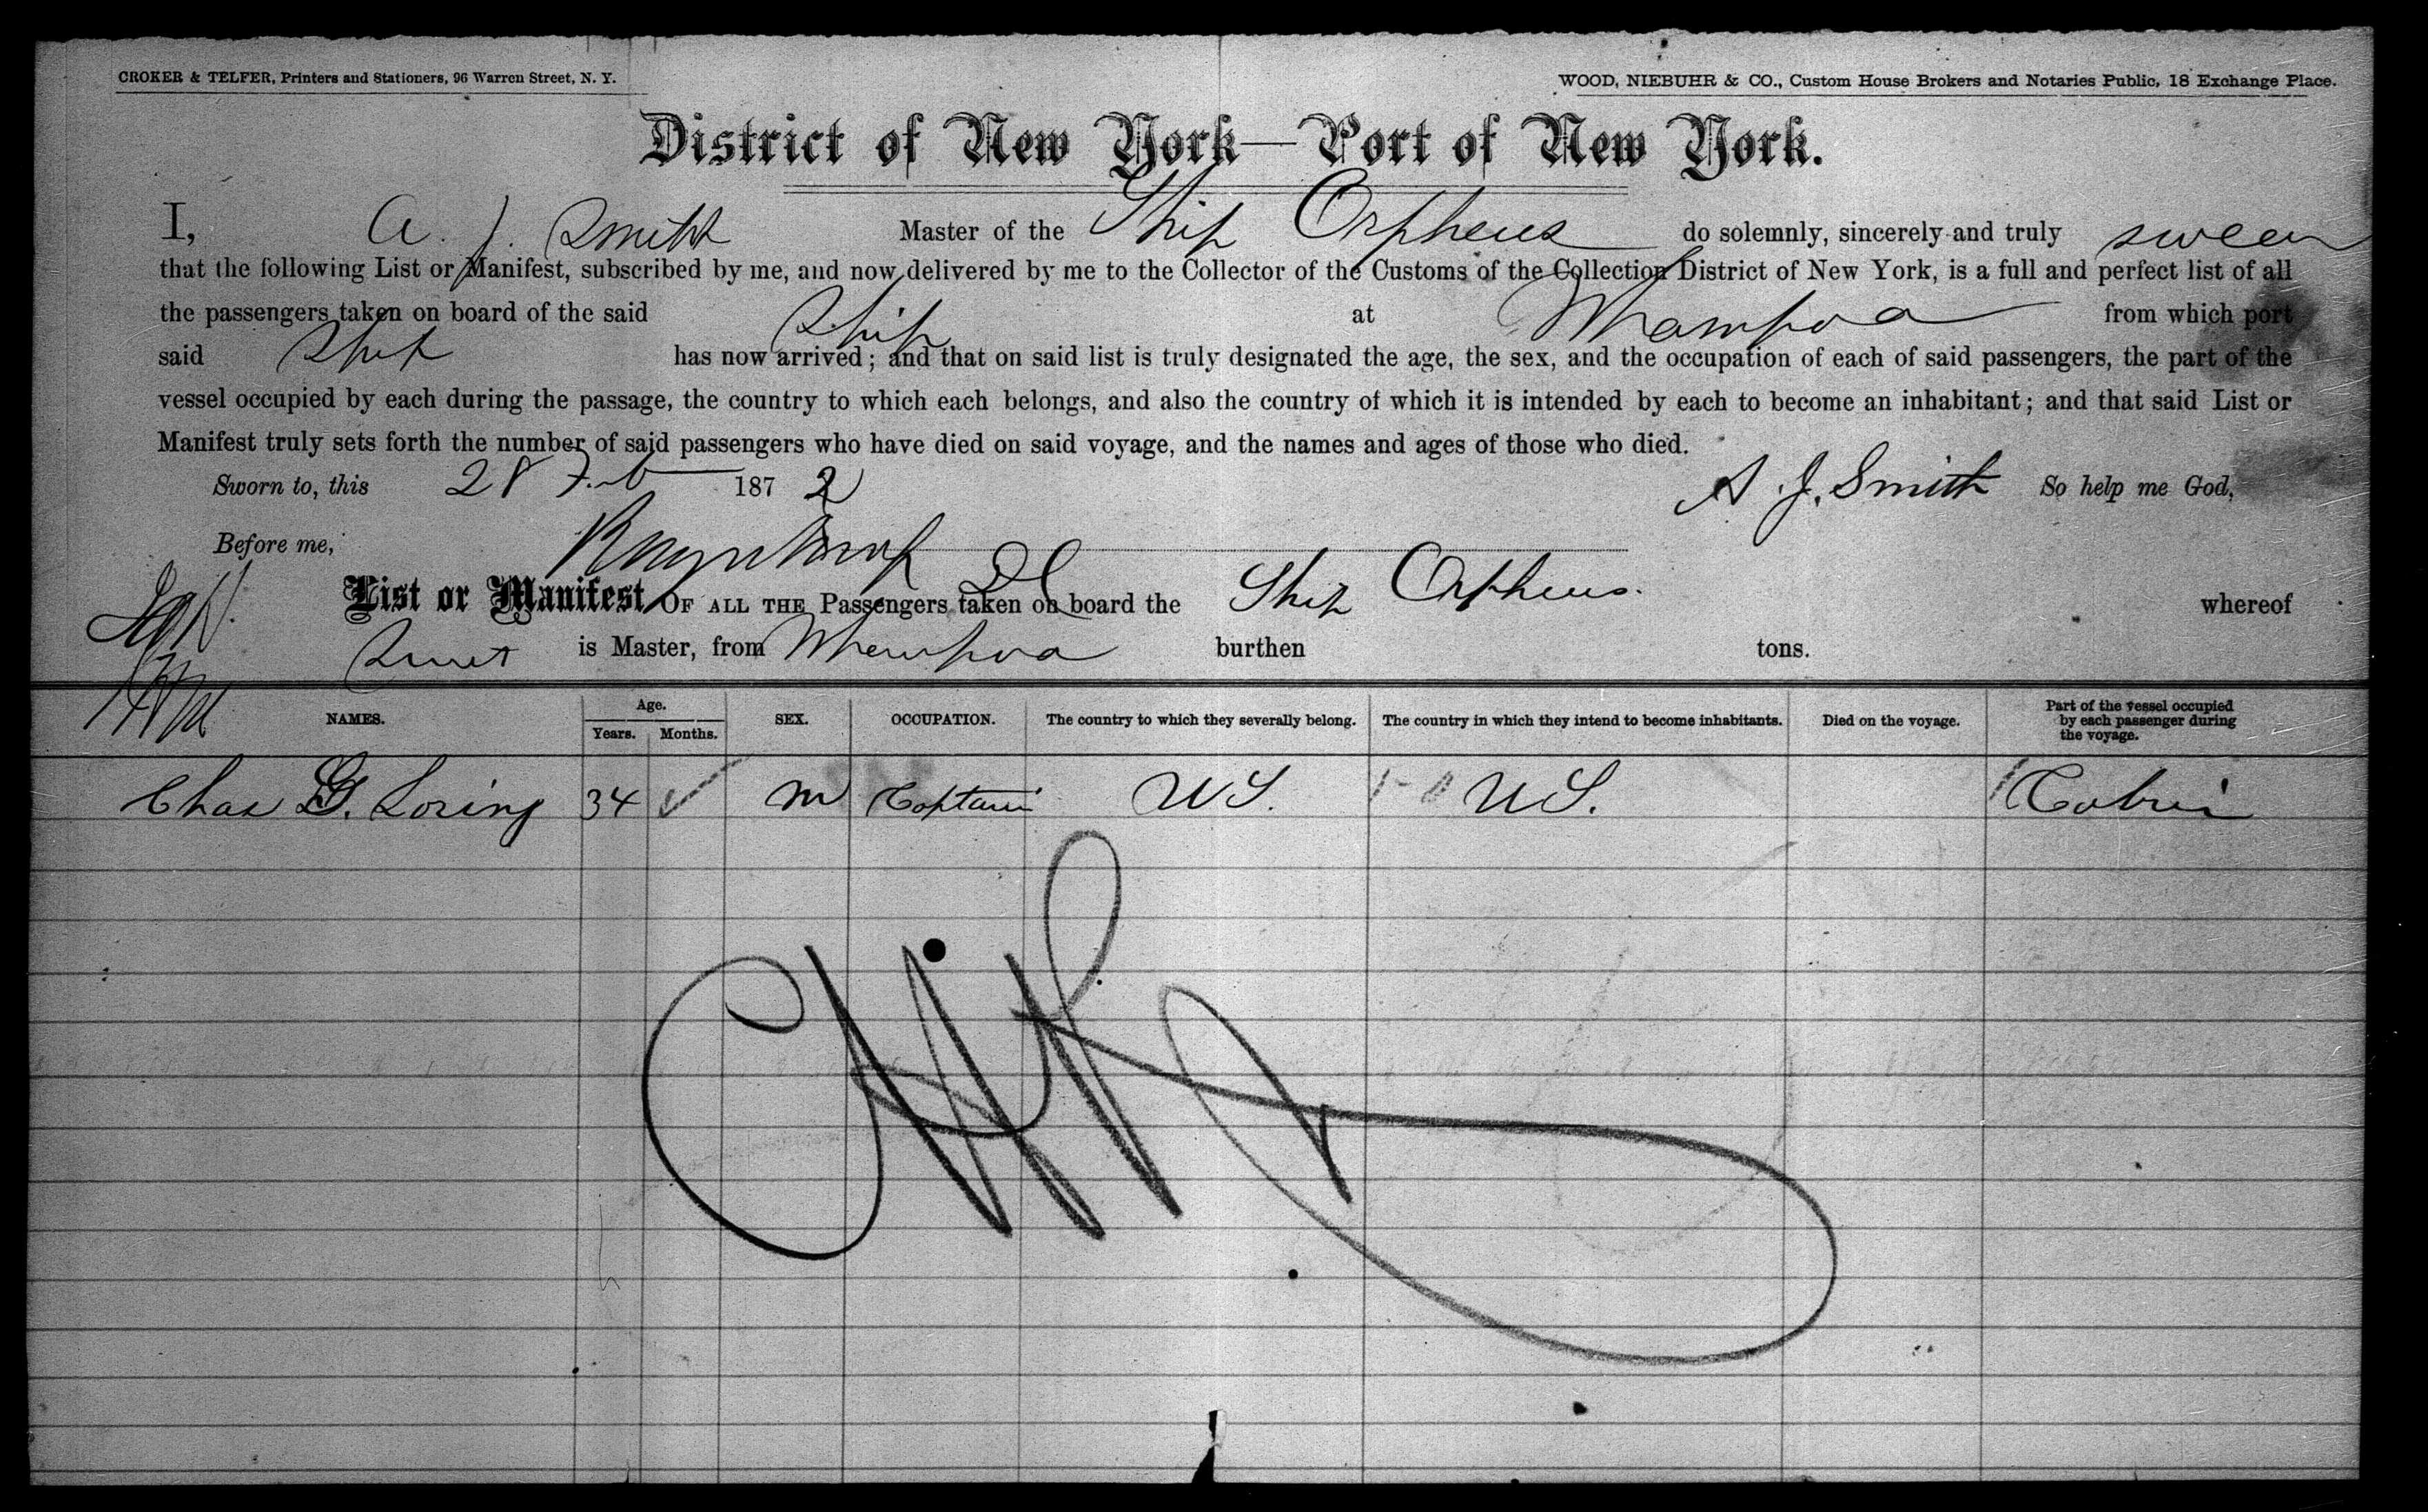 CROKER & TELFER, Printers and Stationers, 96 Warren Street, N. Y.
WOOD, NIEBUHR & CO., Custom House Brokers and Notaries Public, 18 Exchange Place.
District of New York—Port of New York.
I, A. J. Smith Master of the Ship Orpheus do solemnly, sincerely and truly swear
that the following List or Manifest, subscribed by me, and now delivered by me to the Collector of the Customs of the Collection District of New York, is a full and perfect list of all
the passengers taken on board of the said Ship at Whampoa from which port
said Ship has now arrived; and that on said list is truly designated the age, the sex, and the occupation of each of said passengers, the part of the
vessel occupied by each during the passage, the country to which each belongs, and also the country of which it is intended by each to become an inhabitant; and that said List or
Manifest truly sets forth the number of said passengers who have died on said voyage, and the names and ages of those who died.
Sworn to, this 28 Feb 1872 A. J. Smith So help me God,
Before me,
List or Manifest OF ALL THE Passengers taken on board the Ship Orpheus. whereof
Smith is Master, from Whampoa burthen tons.
NAMES. Age. Years. Months. SEX. OCCUPATION. The country to which they severally belong. The country in which they intend to become inhabitants. Died on the voyage. Part of the vessel occupied by each passenger during the voyage.
Chas G. Loring 34 m Captain U S. U S. Cabin